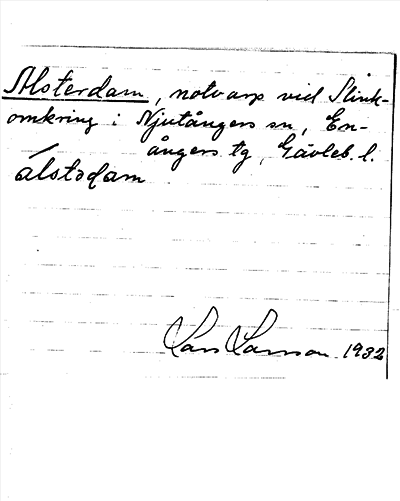 Alsterdam, notvarp vid Slink-
omkring i Njutångers sn, En-
ångers tg, Gävleb. l.
álstədam
Lars Larsson 1932